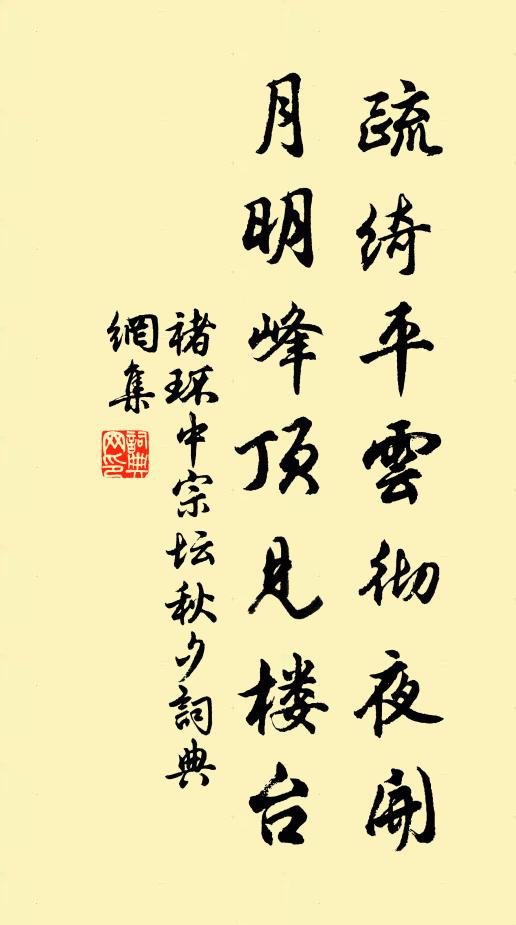 疏绮平雲彻夜開
月明峰顶見楼台
褚环中宗坛秋夕詞典
網集
詞典
网印